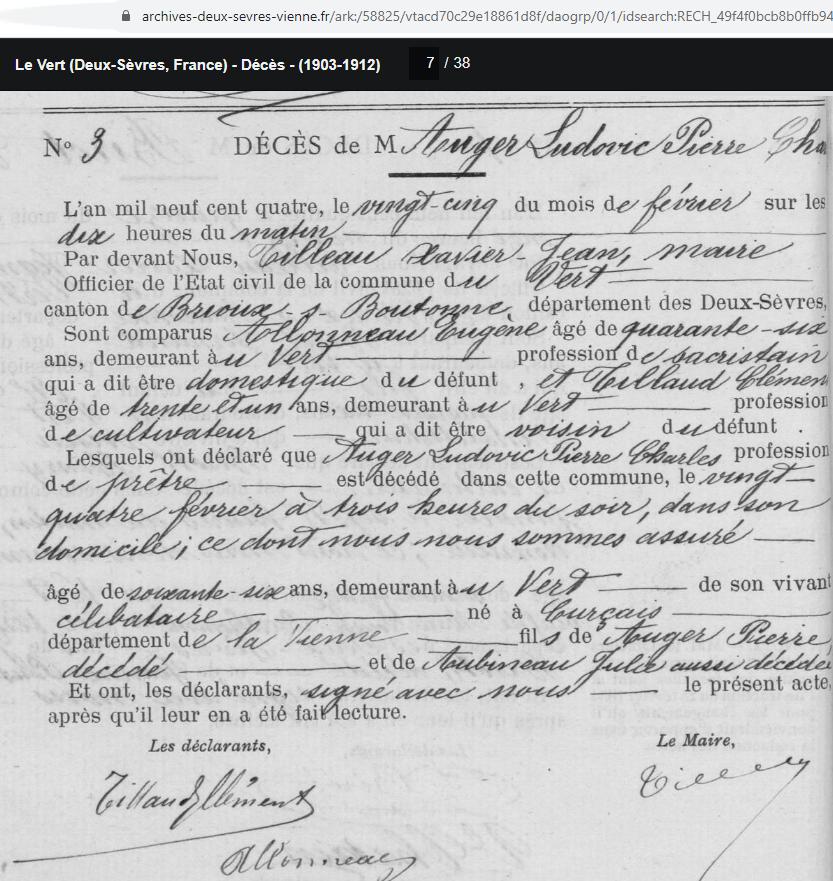 archives-deux-sevres-vienne.fr/ark:/58825/vtacd70c29e18861d8f/daogrp/0/1/idsearch:RECH_49f4f0bcb8b0ffb94
Le Vert (Deux-Sèvres, France) - Décès - (1903-1912) 7 / 38
No 3 DÉCÈS de M Auger Ludovic Pierre Cha
L'an mil neuf cent quatre, le vingt-cinq du mois de février sur les
dix heures du matin
Par devant Nous, Tilleau Xavier-Jean, maire
Officier de l'Etat civil de la commune du Vert
canton de Brioux-s-Boutonne, département des Deux-Sèvres,
Sont comparus Allonneau Eugène âgé de quarante-six
ans, demeurant au Vert profession de sacristain
qui a dit être domestique du défunt, et Tillaud Clémen
âgé de trente et un ans, demeurant au Vert profession
de cultivateur qui a dit être voisin du défunt.
Lesquels ont déclaré que Auger Ludovic Pierre Charles profession
de prêtre est décédé dans cette commune, le vingt-
quatre février à trois heures du soir, dans son
domicile; ce dont nous nous sommes assuré
âgé de soixante-six ans, demeurant au Vert de son vivant
célibataire né à Curçais
département de la Vienne fils de Auger Pierre,
décédé et de Aubineau Julie aussi décédée
Et ont, les déclarants, signé avec nous le présent acte,
après qu'il leur en a été fait lecture.
Les déclarants, Le Maire,
Tillaud Clément
Allonneau